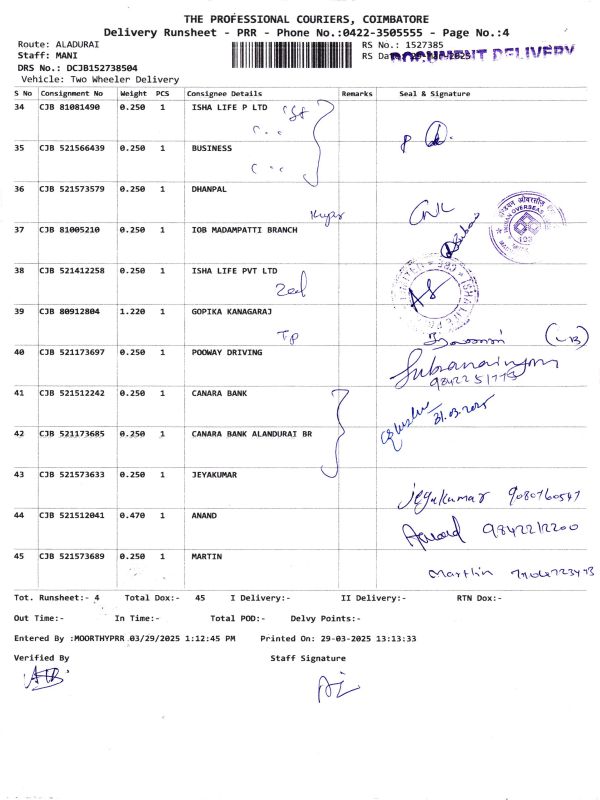 THE PROFESSIONAL COURIERS, COIMBATORE
Delivery Runsheet - PRR - Phone No.:0422-3505555 - Page No.:4
Route: ALADURAI
RS No.: 1527385
Staff: MANI
RS Da
DOCUMENT DELIVERY
DRS No.: DCJB152738504
Vehicle: Two Wheeler Delivery
S No Consignment No Weight PCS Consignee Details Remarks Seal & Signature
34 CJB 81081490 0.250 1 ISHA LIFE P LTD
35 CJB 521566439 0.250 1 BUSINESS
36 CJB 521573579 0.250 1 DHANPAL
37 CJB 81005210 0.250 1 IOB MADAMPATTI BRANCH
38 CJB 521412258 0.250 1 ISHA LIFE PVT LTD
39 CJB 80912804 1.220 1 GOPIKA KANAGARAJ
Tp
40 CJB 521173697 0.250 1 POOWAY DRIVING
41 CJB 521512242 0.250 1 CANARA BANK
42 CJB 521173685 0.250 1 CANARA BANK ALANDURAI BR
43 CJB 521573633 0.250 1 JEYAKUMAR
Jeyakumar 9080760547
44 CJB 521512041 0.470 1 ANAND
Anand 9842212200
45 CJB 521573689 0.250 1 MARTIN
Martin
Tot. Runsheet:- 4 Total Dox:- 45 I Delivery:- II Delivery:- RTN Dox:-
Out Time:- In Time:- Total POD:- Delvy Points:-
Entered By :MOORTHYPRR 03/29/2025 1:12:45 PM Printed On: 29-03-2025 13:13:33
Verified By Staff Signature